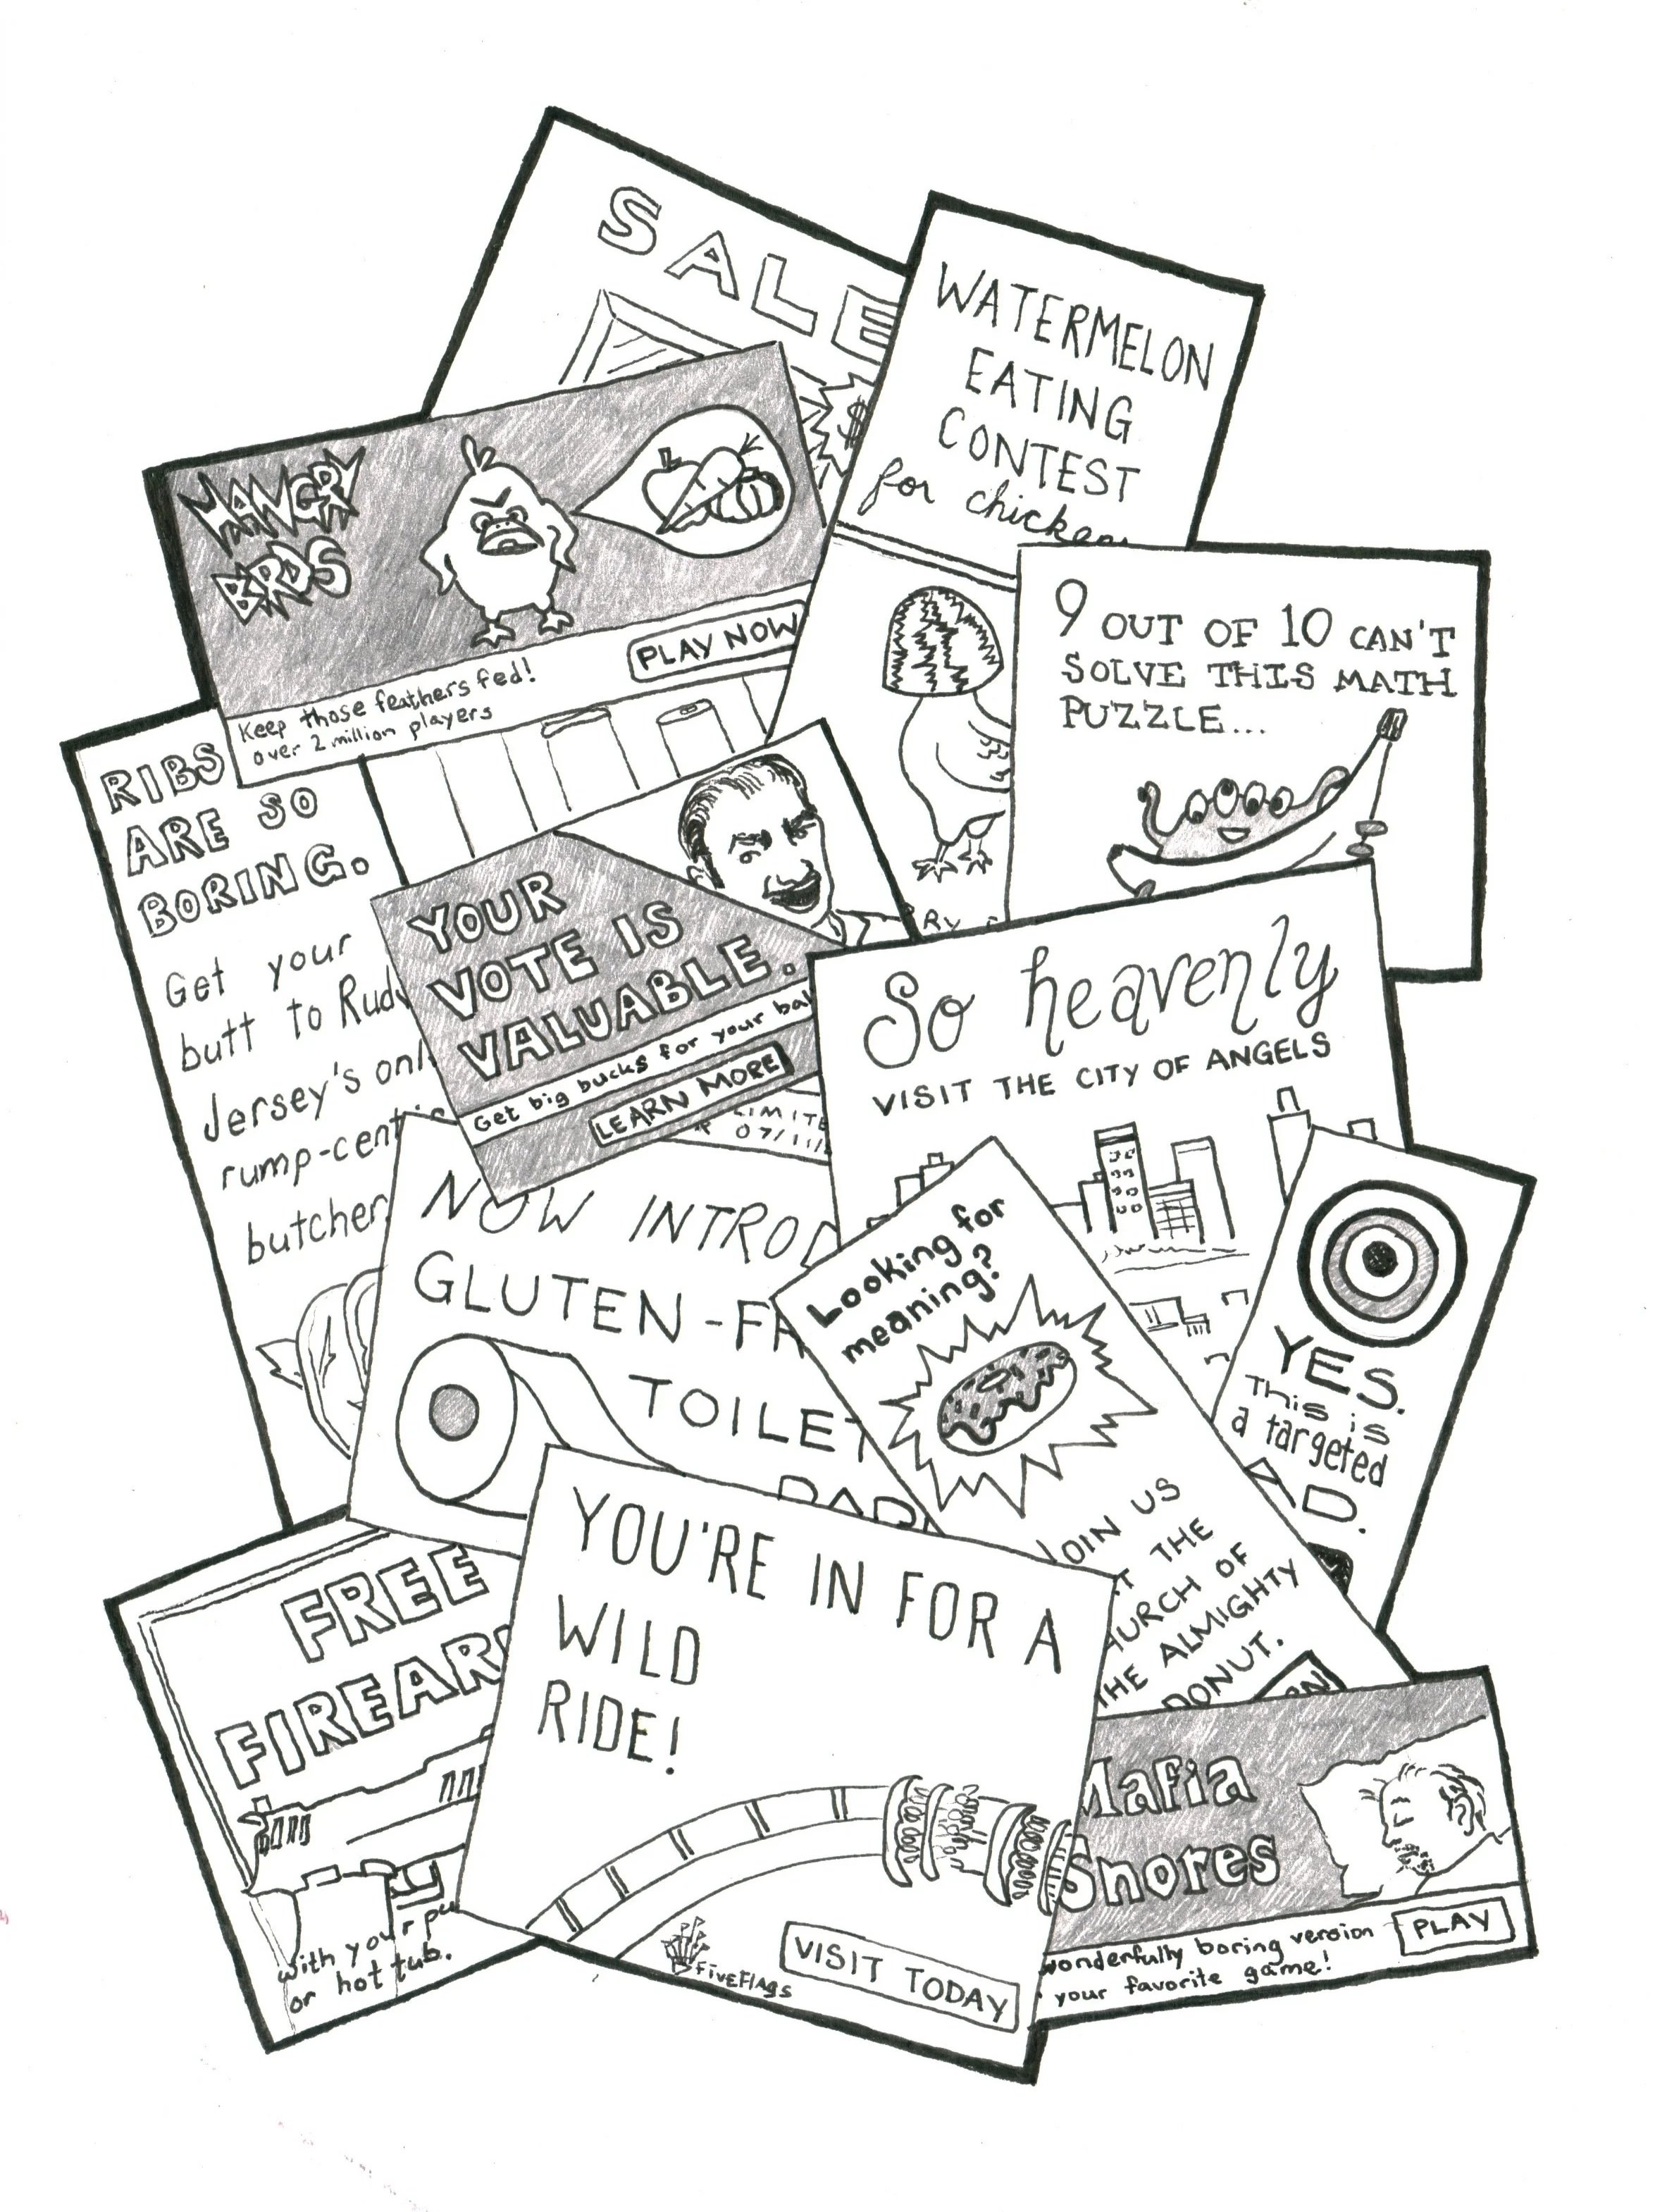 SALE
$
WATERMELON
EATING
CONTEST
for chicken
HANGRY
BIRDS
PLAY NOW
Keep those feathers fed!
over 2 million players
9 OUT OF 10 CAN'T
SOLVE THIS MATH
PUZZLE...
RIBS
ARE SO
BORING.
Get your
butt to Rudy
Jersey's onl
rump-cent
butcher
YOUR
VOTE IS
VALUABLE.
Get big bucks for your bal
LEARN MORE
LIMITE
07/11/
So heavenly
VISIT THE CITY OF ANGELS
NOW INTROD
GLUTEN-FR
TOILET
PAP
Looking for
meaning?
JOIN US
AT THE
HURCH OF
THE ALMIGHTY
DONUT.
YES.
This is
a targeted
AD.
FREE
FIREAR
with your pu
or hot tub.
YOU'RE IN FOR A
WILD
RIDE!
FiveFlags
VISIT TODAY
Mafia
Snores
wonderfully boring version
your favorite game!
PLAY